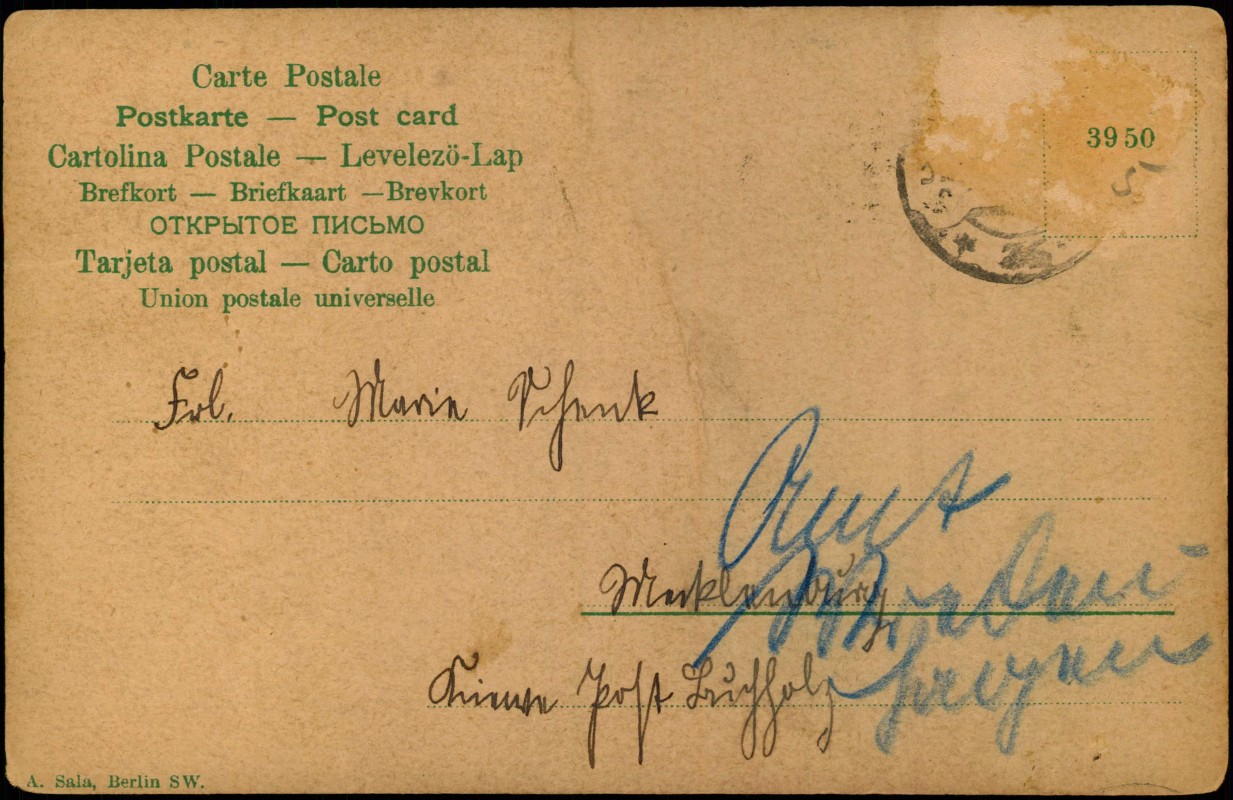 Carte Postale
Postkarte — Post card
Cartolina Postale — Levelező-Lap
Brefkort — Briefkaart — Brevkort
ОТКРЫТОЕ ПИСЬМО
Tarjeta postal — Carto postal
Union postale universelle
3950
5
Frl. Marie Schenk
Amt
Mecklenburg
Post Buchholz
A. Sala, Berlin SW.